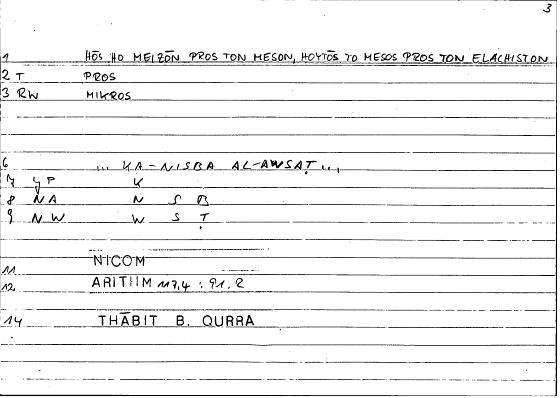 3
1 HŌS HO MEIZŌN PROS TON MESON, HOYTŌS TO MESOS PROS TON ELACHISTON
2 T PROS
3 RW MIKROS
6 ... KA-NISBA AL-AWSAṬ ...,
7 yP K
8 NA N S B
9 NW W S Ṭ
11 NICOM
12 ARITIIM 117,4 : 91.2
14 THĀBIT B. QURRA